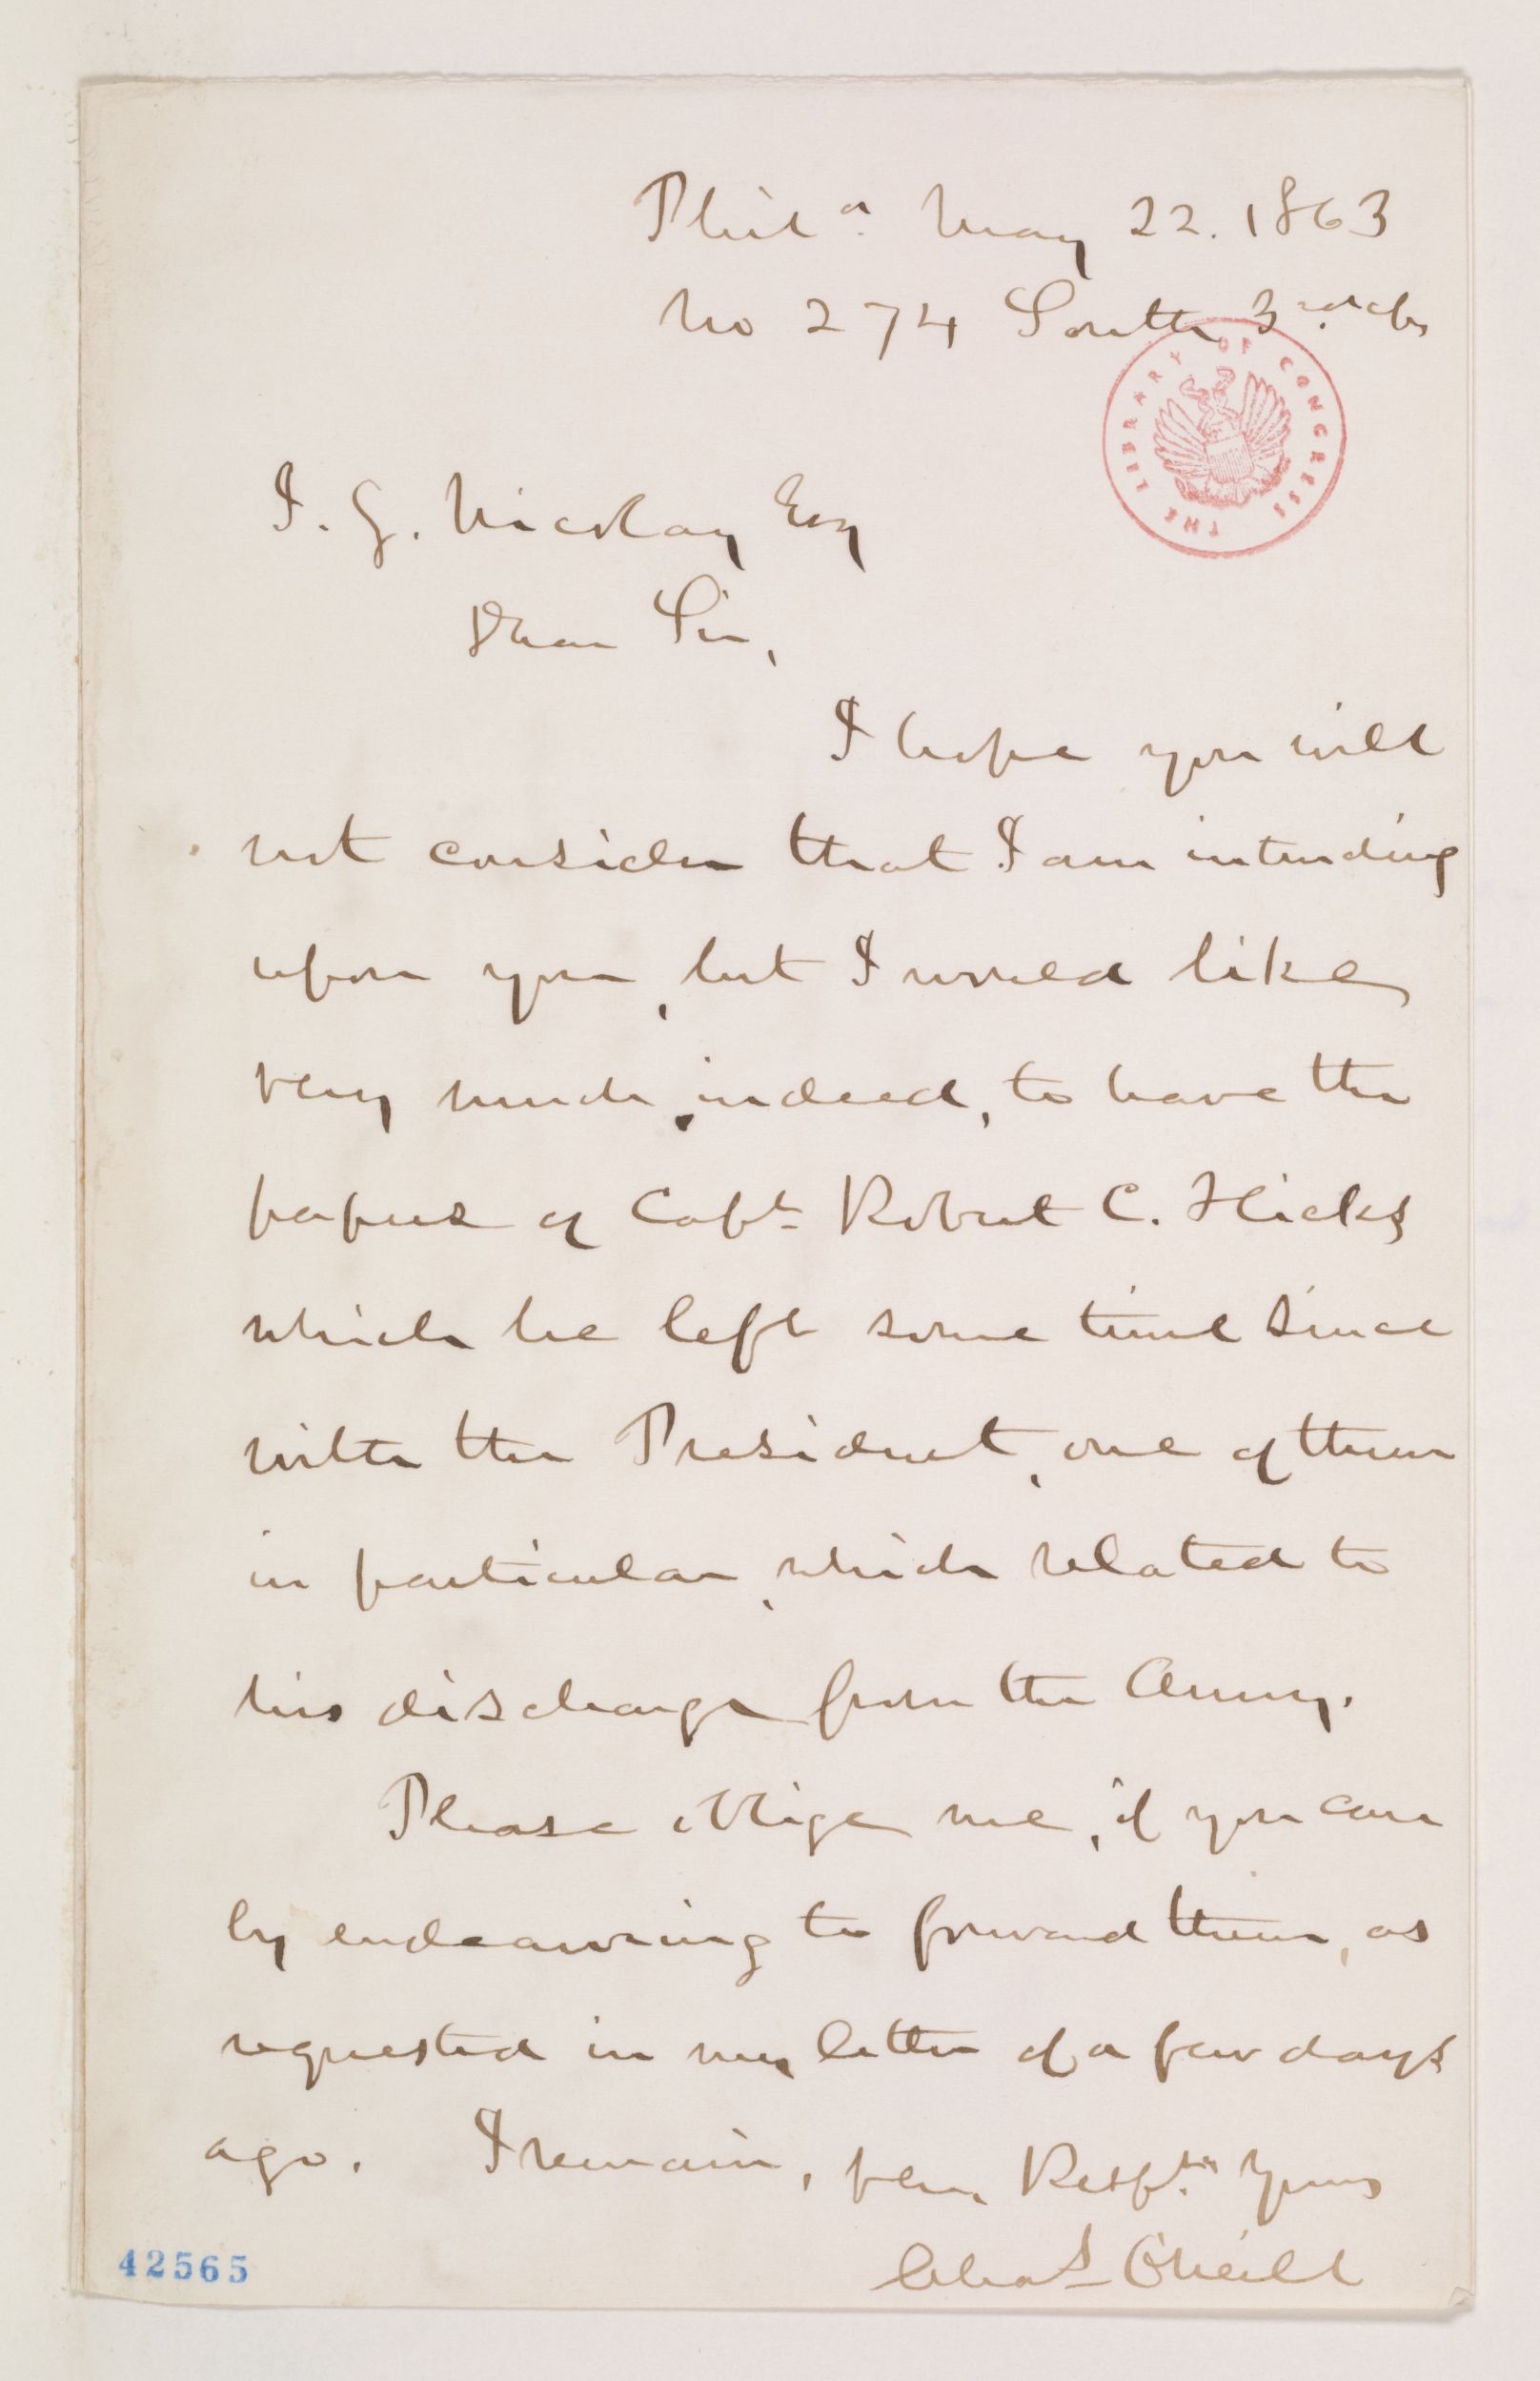 Phila. May 22. 1863
No 274 South 3rd St
THE LIBRARY OF CONGRESS
J. G. Nicolay Esq
Dear Sir,
I hope you will
not consider that I am intruding
upon you, but I would like
very much, indeed, to have the
papers of Capt. Robert C. Hicks
which he left some time since
with the President, one of them
in particular, which related to
his discharge from the Army.
Please oblige me, if you can
by endeavoring to forward them, as
requested in my letter of a few days
ago. I remain, Respty Yours
Chas O'Neill
42565